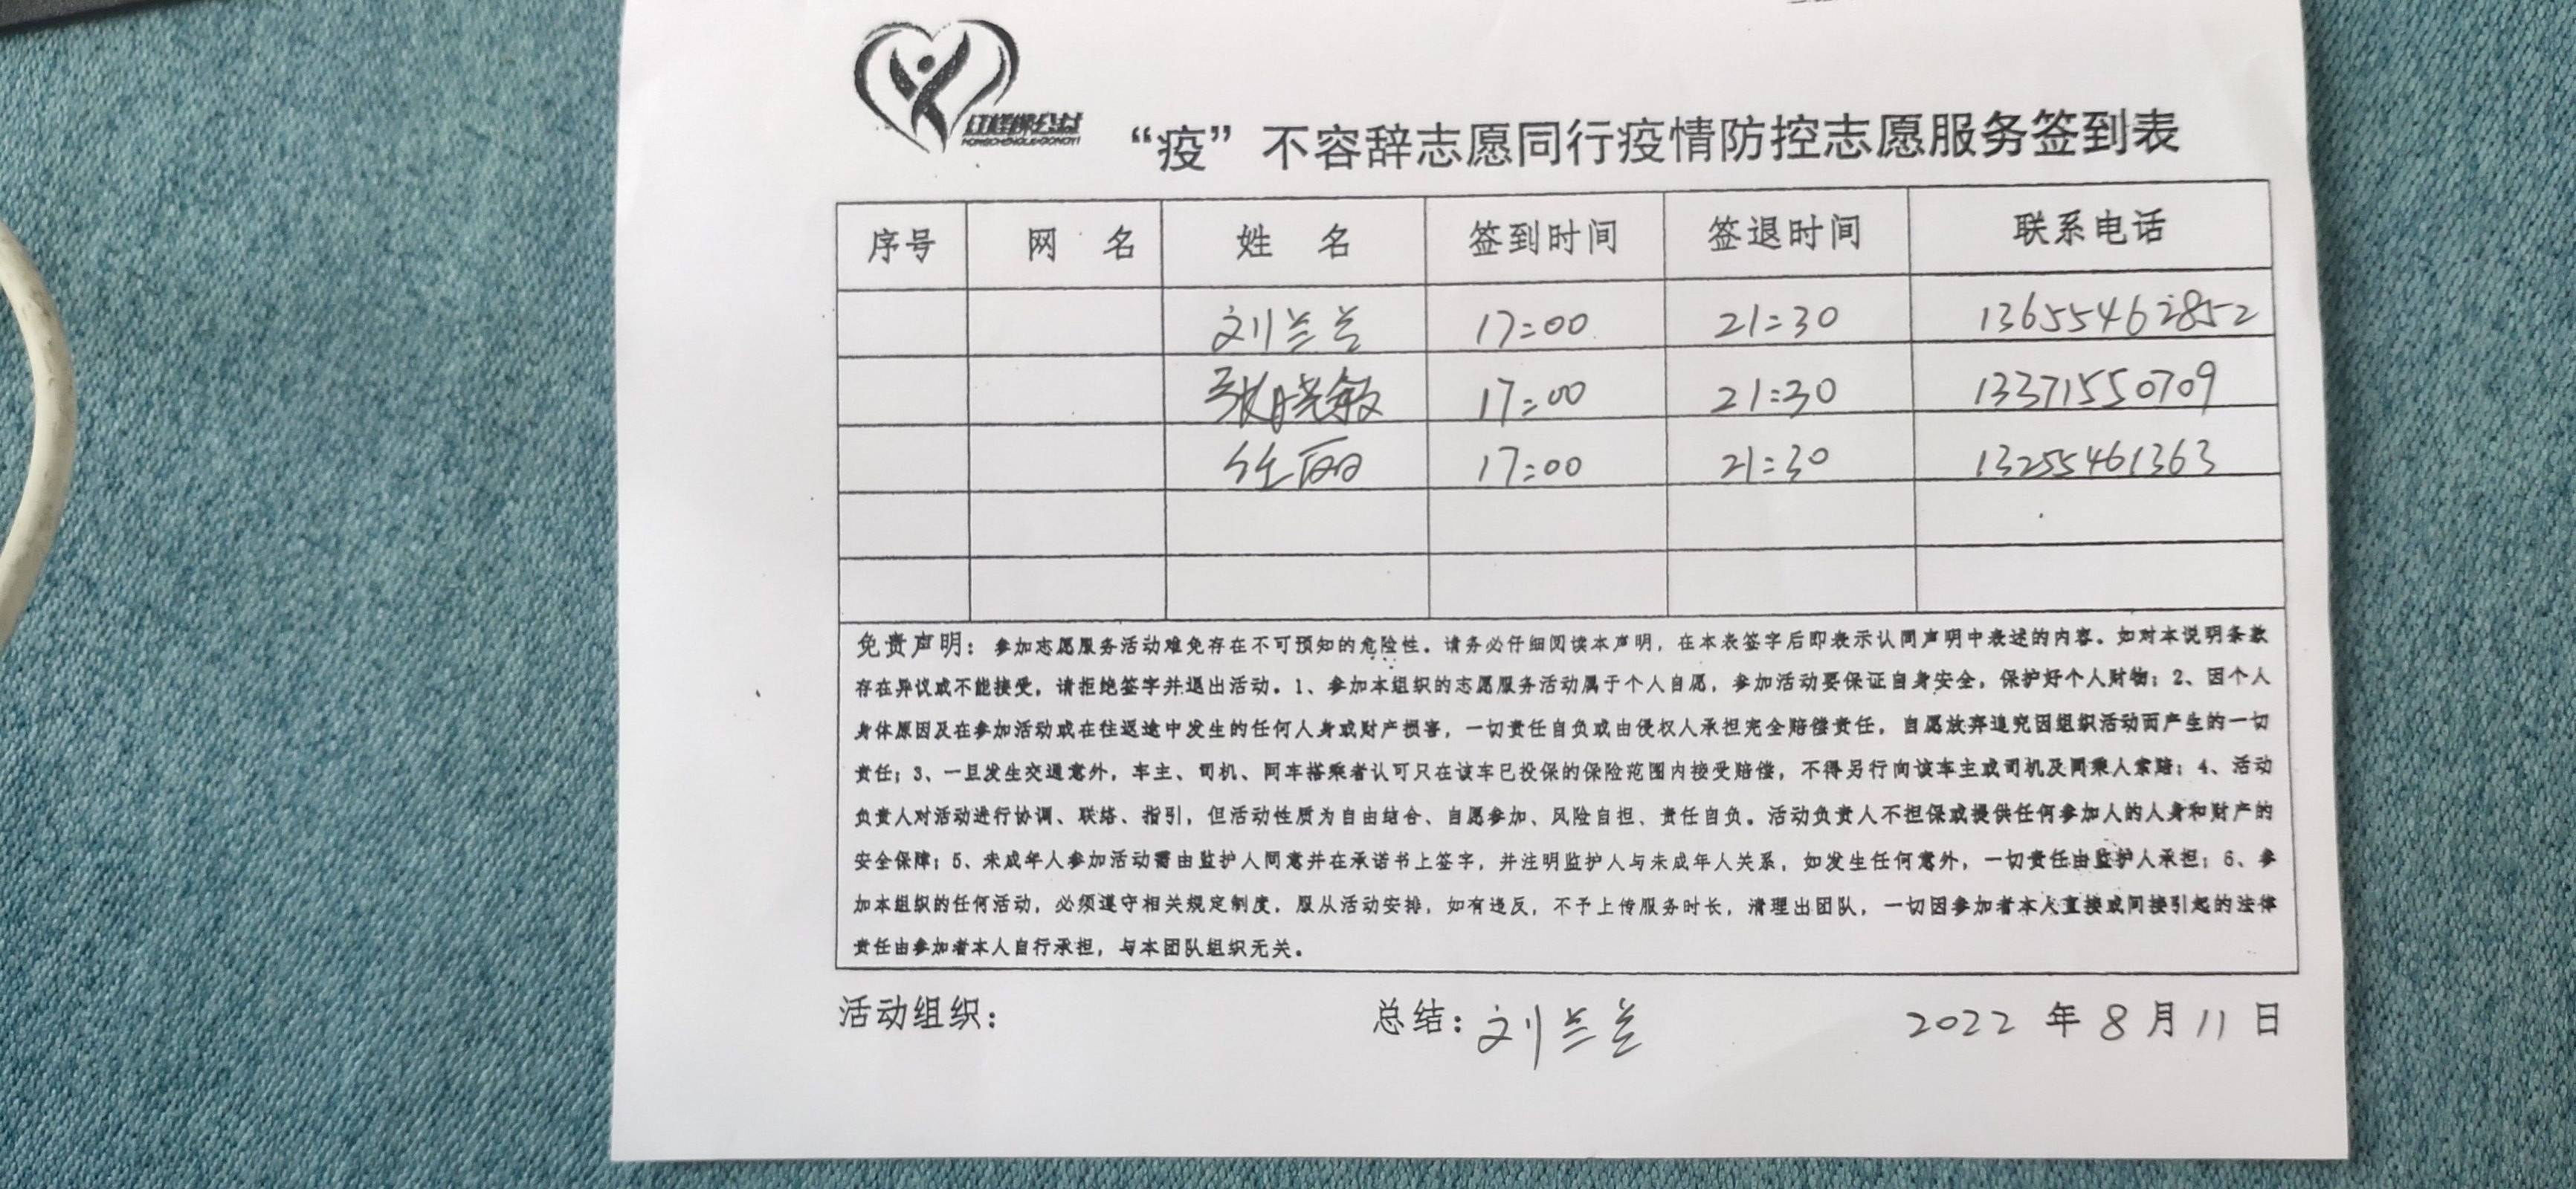 红橙乐公益
HONGCHENGLEGONGYI
“疫”不容辞志愿同行疫情防控志愿服务签到表
序号 网 名 姓 名 签到时间 签退时间 联系电话
刘兰兰 17:00 21:30 13655462852
张晓敏 17:00 21:30 13371550709
任丽 17:00 21:30 13255461363
免责声明：参加志愿服务活动难免存在不可预知的危险性。请务必仔细阅读本声明，在本表签字后即表示认同声明中表述的内容。如对本说明条款
存在异议或不能接受，请拒绝签字并退出活动。1、参加本组织的志愿服务活动属于个人自愿，参加活动要保证自身安全，保护好个人财物；2、因个人
身体原因及在参加活动或在往返途中发生的任何人身或财产损害，一切责任自负或由侵权人承担完全赔偿责任，自愿放弃追究因组织活动而产生的一切
责任；3、一旦发生交通意外，车主、司机、同车搭乘者认可只在该车已投保的保险范围内接受赔偿，不得另行向该车主或司机及同乘人索赔；4、活动
负责人对活动进行协调、联络、指引，但活动性质为自由结合、自愿参加、风险自担、责任自负。活动负责人不担保或提供任何参加人的人身和财产的
安全保障；5、未成年人参加活动需由监护人同意并在承诺书上签字，并注明监护人与未成年人关系，如发生任何意外，一切责任由监护人承担；6、参
加本组织的任何活动，必须遵守相关规定制度，服从活动安排，如有违反，不予上传服务时长，清理出团队，一切因参加者本人直接或间接引起的法律
责任由参加者本人自行承担，与本团队组织无关。
活动组织： 总结：刘兰兰 2022 年 8 月 11 日